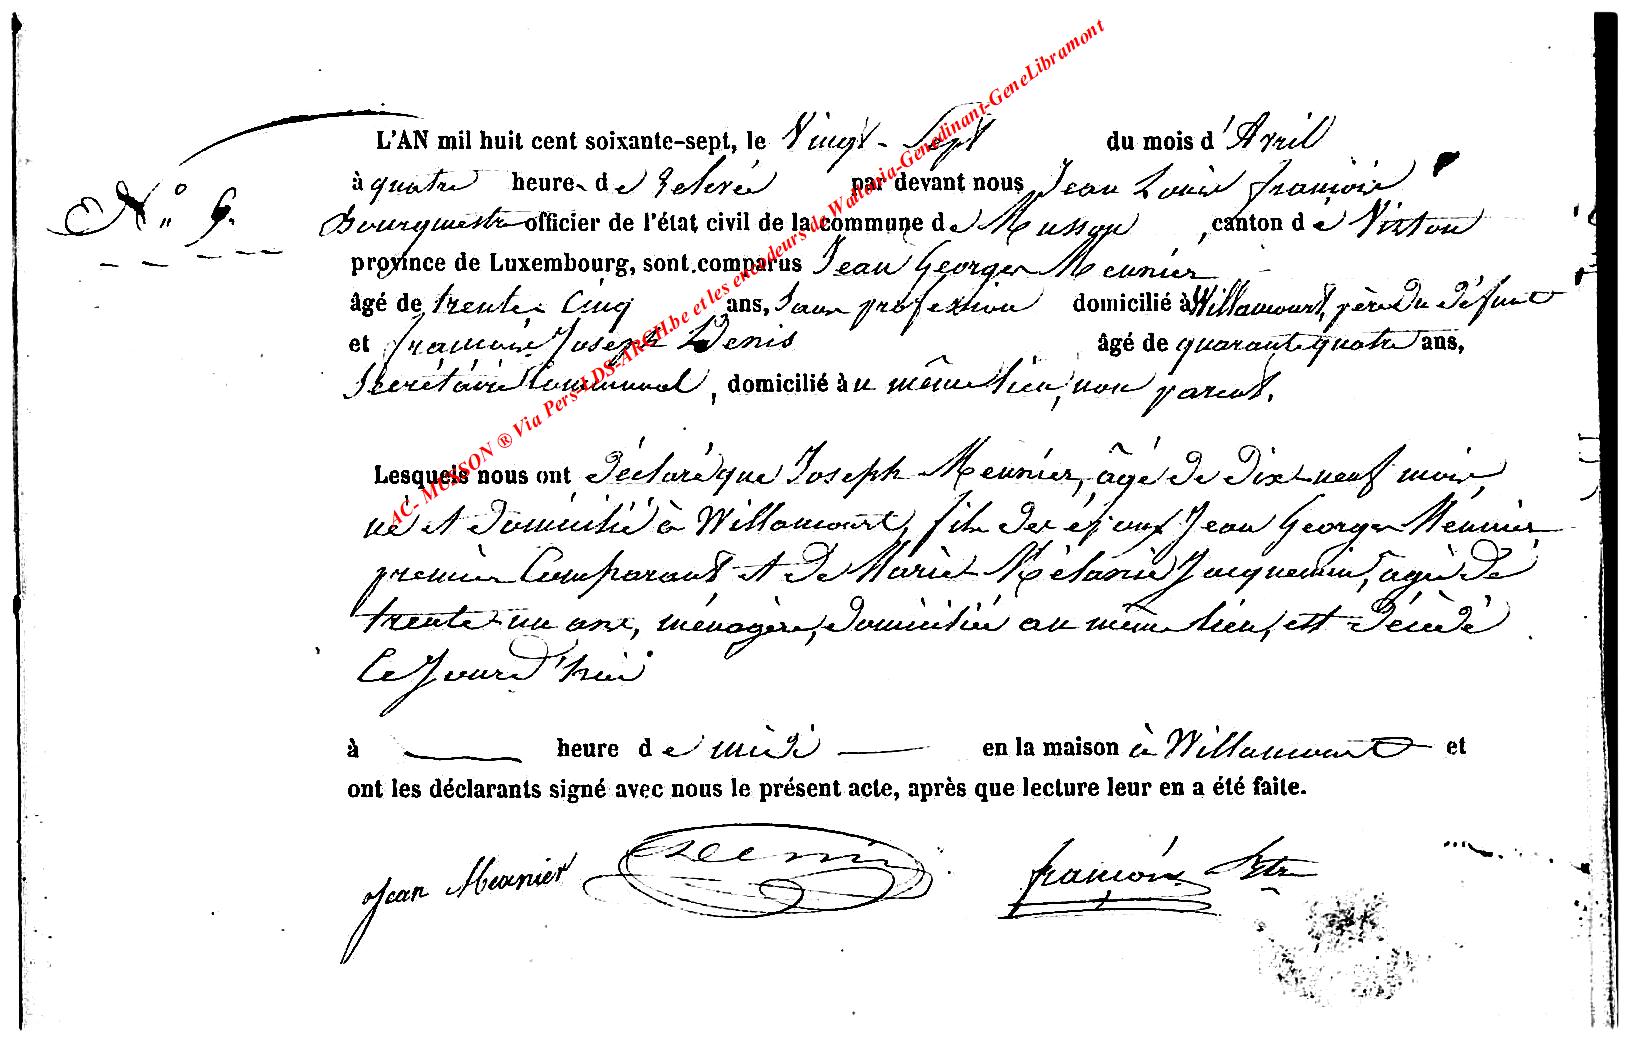 L'AN mil huit cent soixante-sept, le Vingt-Sept du mois d'Avril
à quatre heure de relevée par devant nous Jean Louis françois
N° 9.
Bourgmestre officier de l'état civil de la commune de Musson, canton de Virton
province de Luxembourg, sont comparus Jean Georges Meunier
âgé de trente Cinq ans, sans profession domicilié à Willancourt, père du défunt
et françois Joseph Denis âgé de quarante quatre ans,
Secrétaire Communal, domicilié au même lieu, non parent.
Lesquels nous ont déclaré que Joseph Meunier, âgé de dix neuf mois
né et domicilié à Willancourt, fils des époux Jean Georges Meunier
premier Comparant et de Marie Mélanie Jacquemin, agée de
trente un ans, ménagère, domiciliée au même lieu, est décédé
Ce Jourd'hui
à heure de midi en la maison à Willancourt et
ont les déclarants signé avec nous le présent acte, après que lecture leur en a été faite.
Jean Meunier Denis françois
AC- MUSSON ® Via Pers-LDS-ARCH.be et les encodeurs de Wallonia-Genedinant-GeneLibramont